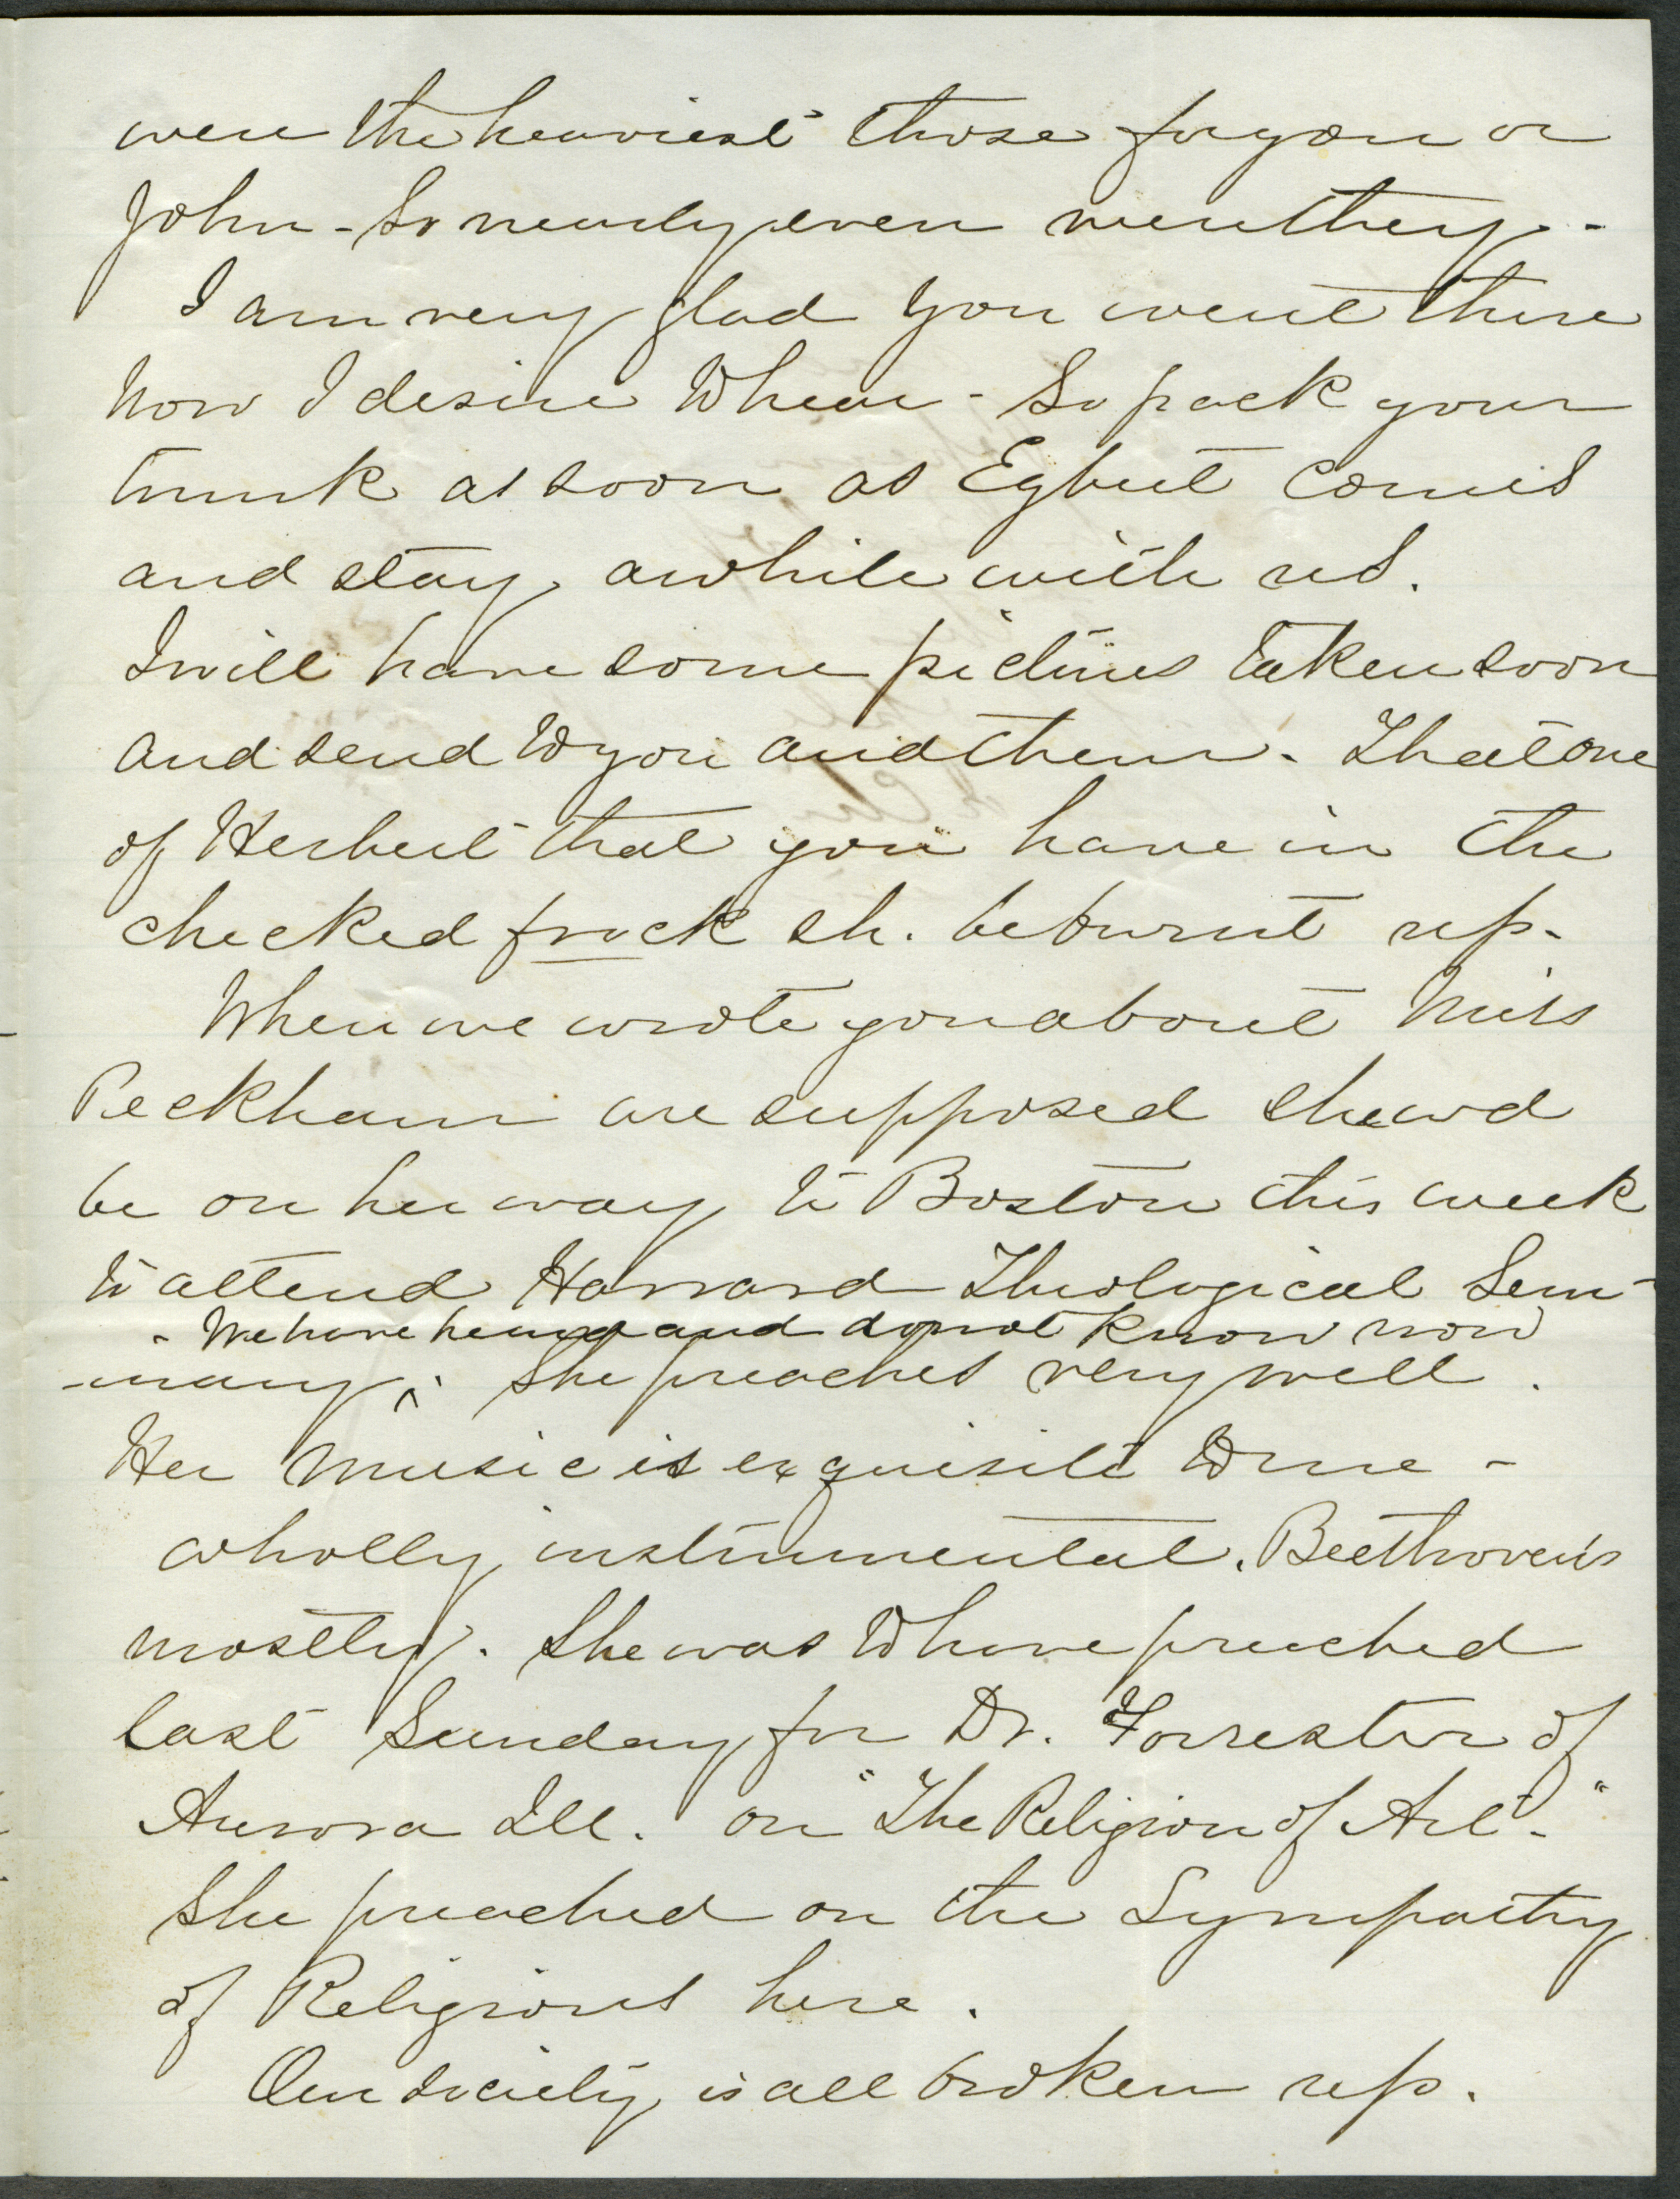 were the heaviest those for you or
John - So nearly even were they -
I am very glad you went there
Now I desire to hear - So pack your
trunk as soon as Egbert comes
and stay awhile with us.
I will have some pictures taken soon
and send to you and them - That one
of Herbert that you have in the
checked frock sh. be burnt up -
When we wrote you about Miss
Peckham we supposed she wd
be on her way to Boston this week
to attend Harvard Theological Sem-
- We have heard and do not know now
-inary. She preaches very well.
Her music is exquisite to me -
wholly instrumental. Beethoven's
mostly. She was to have preached
last Sunday for Dr. Forrester of
Aurora Ill. on "The Religion of Art -"
She preached on the Sympathy
of Religions here.
Our society is all broken up.